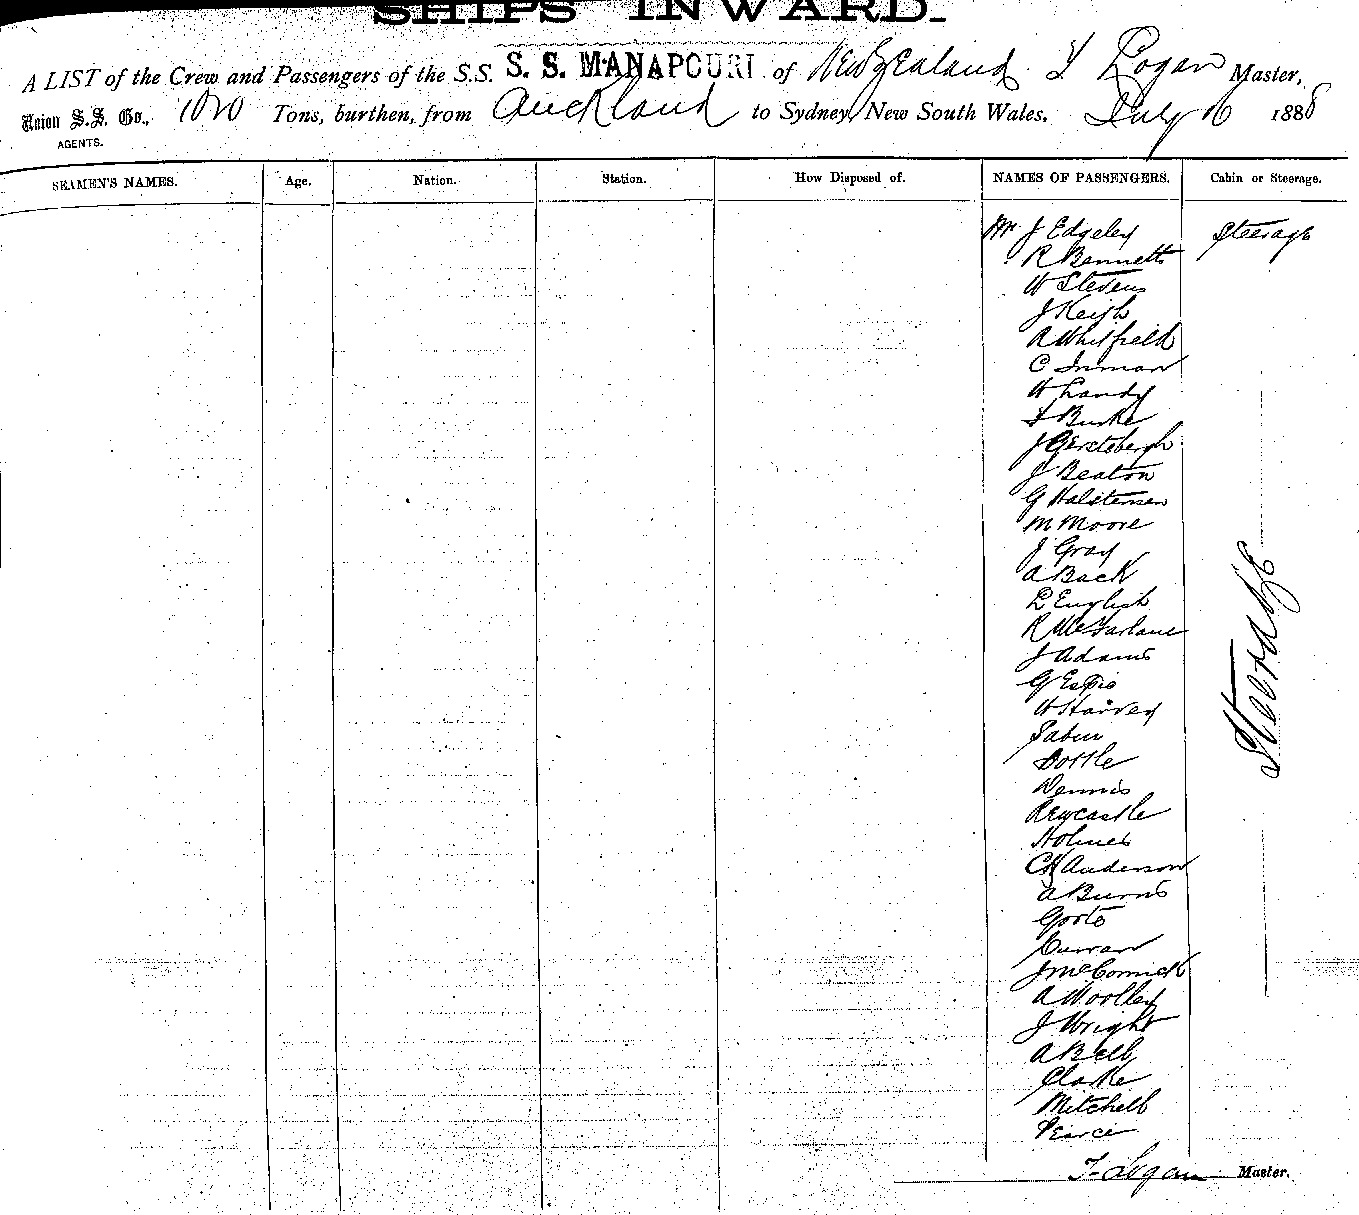 SHIPS INWARD.
A LIST of the Crew and Passengers of the S.S. S. S. MANAPOURI of New Zealand. Logan Master,
Union S.S. Co., Tons, burthen, from Auckland to Sydney, New South Wales, July 16 1888
AGENTS.
SEAMEN'S NAMES. Age. Nation. Station. How Disposed of. NAMES OF PASSENGERS. Cabin or Steerage.
Mr J Edgeley Steerage
R Bennetts
W Stevens
J Keigh
A Whitfield
C Inman
W Landy
F Burke
J
J Beaton
G Halstemen
M Moore
J Gray
A Back
L English
R McFarlane
J Adams
G
W Harvey
Steerage
Dottle
Dennis
Newcastle
Holmes
CH Anderson
A Burns
Curran
J McCormick
A Woolley
J Wright
A Bell
Clarke
Mitchell
Pearce
T Logan Master.